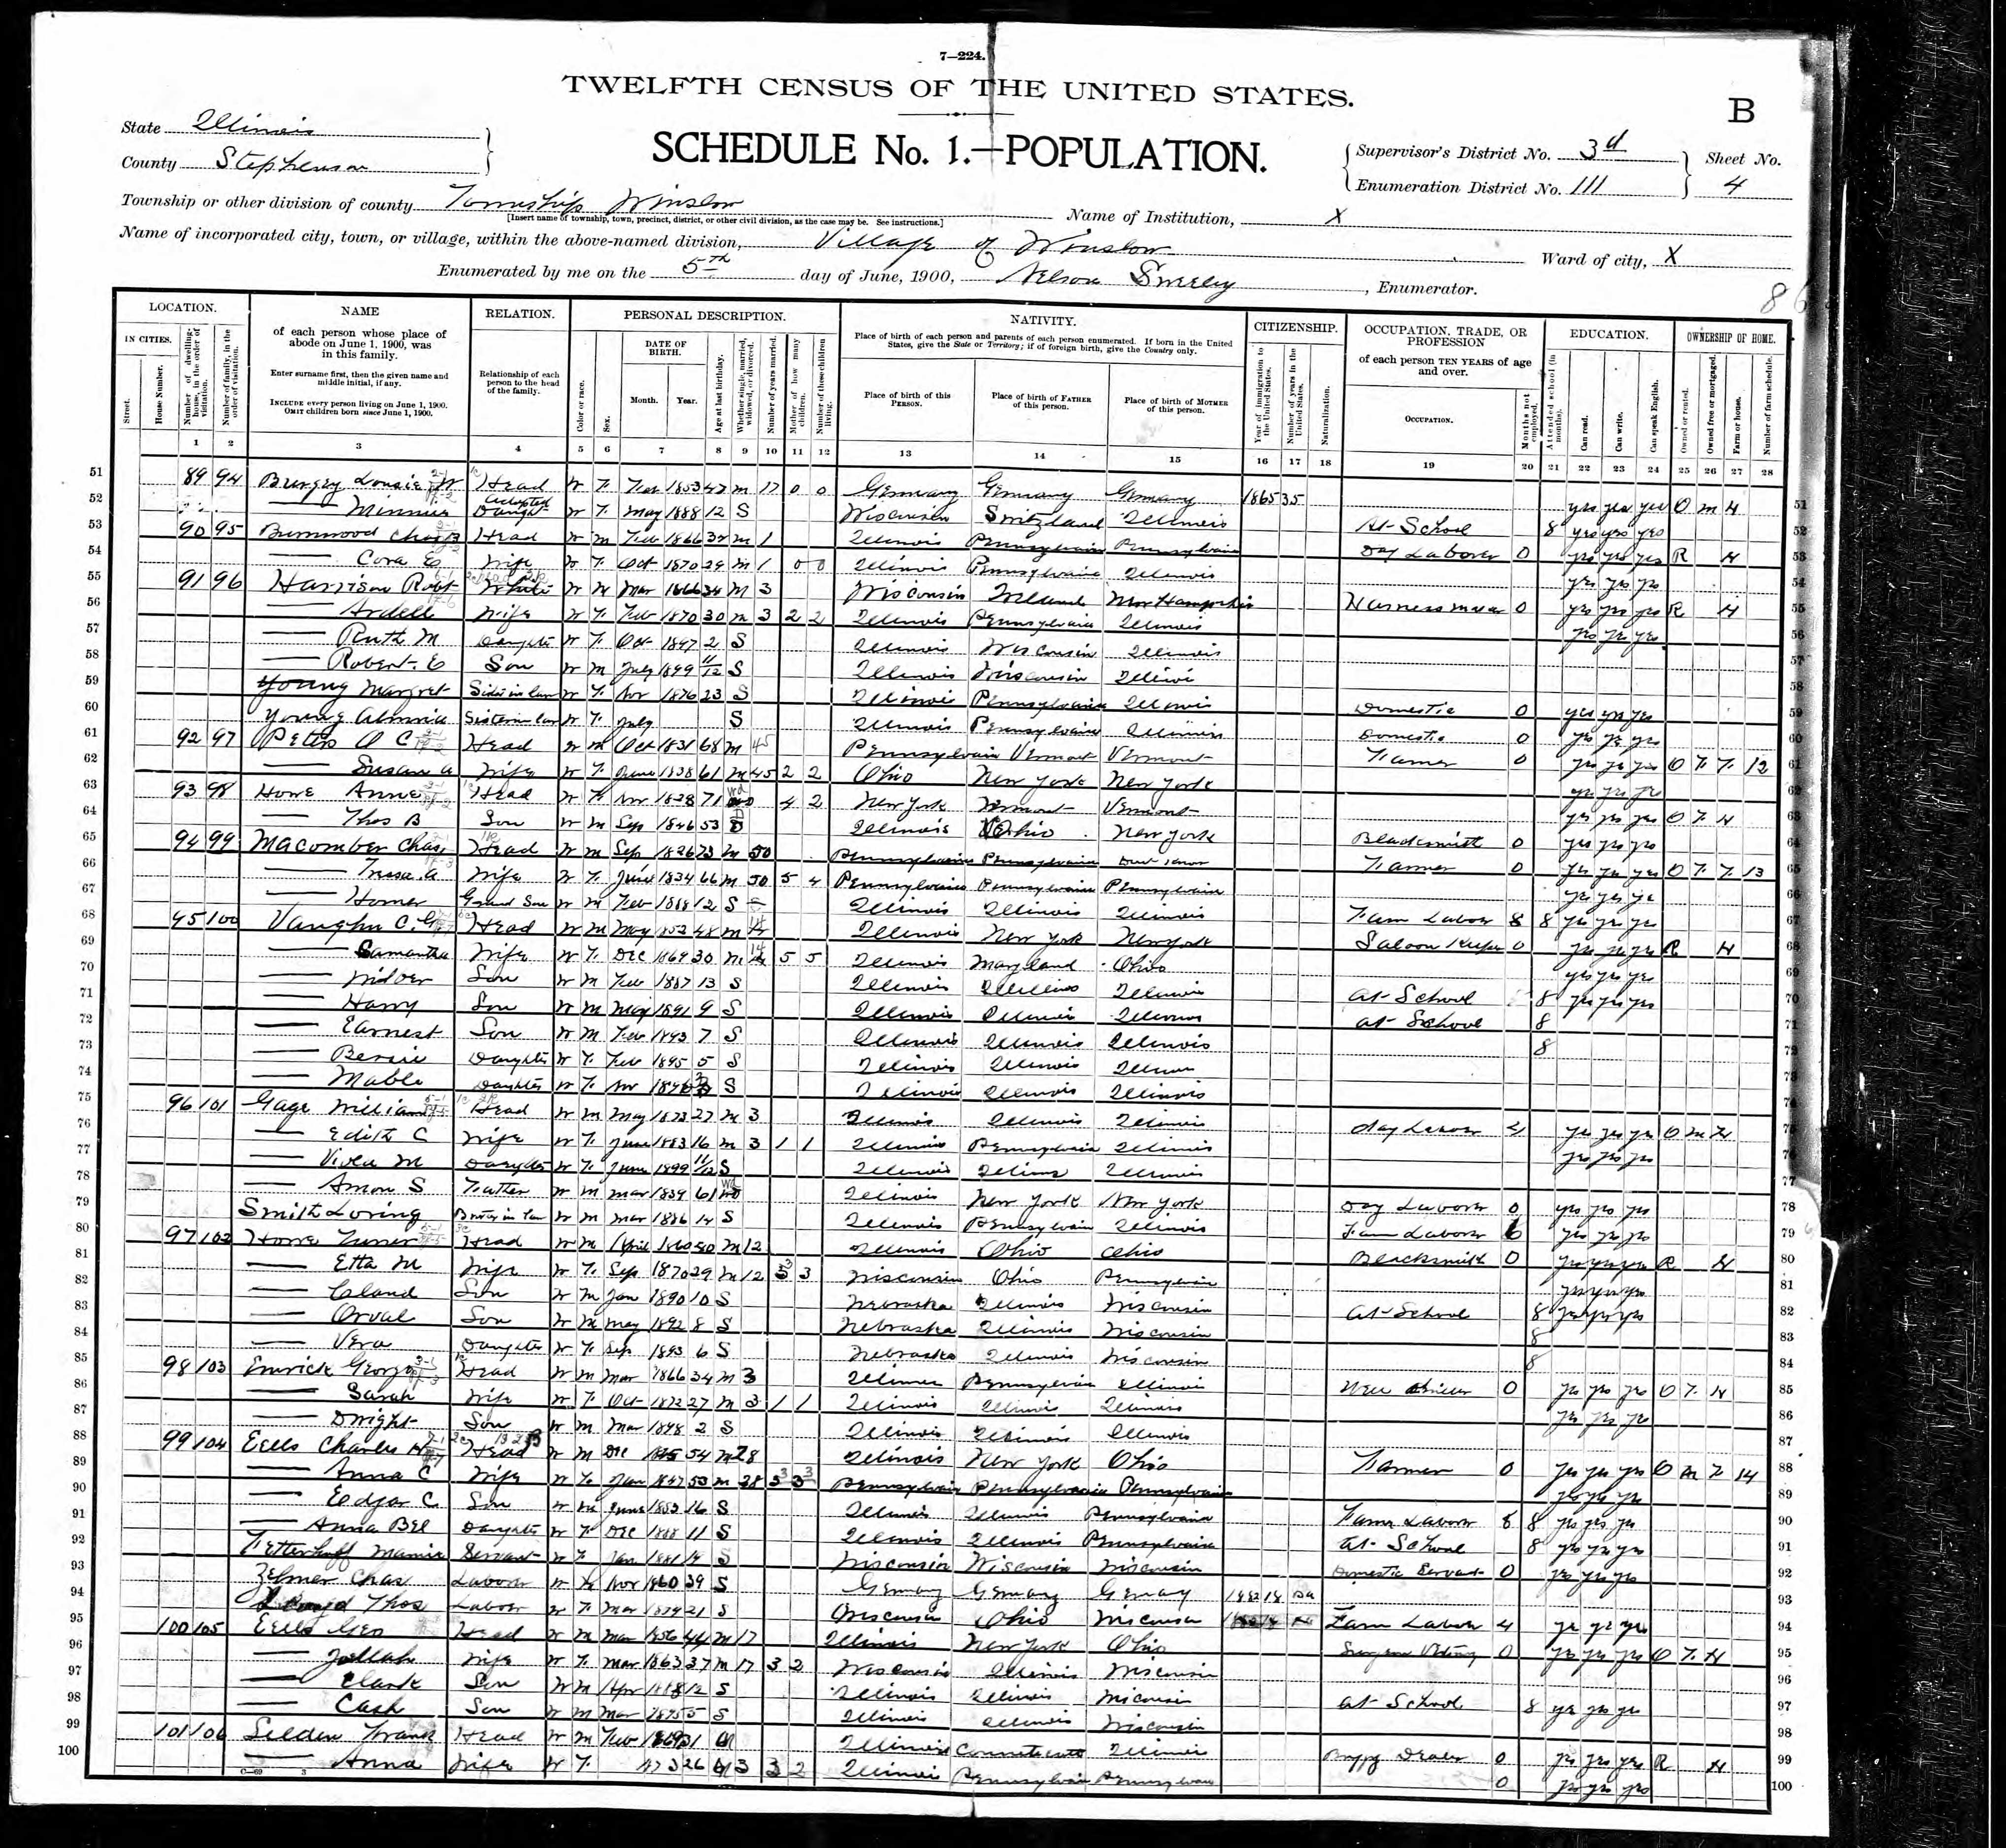 7—224.
TWELFTH CENSUS OF THE UNITED STATES.
B
State Illinois
County Stephenson
SCHEDULE No. 1.—POPULATION.
Supervisor's District No. 3d
Enumeration District No. 111
Sheet No. 4
Township or other division of county Township Winslow
[Insert name of township, town, precinct, district, or other civil division, as the case may be. See instructions.]
Name of Institution, X
Name of incorporated city, town, or village, within the above-named division, Village of Winslow
Ward of city, X
Enumerated by me on the 5th day of June, 1900, Nelson , Enumerator.
86
LOCATION. NAME RELATION. PERSONAL DESCRIPTION. NATIVITY. CITIZENSHIP. OCCUPATION, TRADE, OR PROFESSION EDUCATION. OWNERSHIP OF HOME.
IN CITIES. Street. House Number. Number of dwelling-house, in the order of visitation. Number of family, in the order of visitation.
of each person whose place of abode on June 1, 1900, was in this family.
Enter surname first, then the given name and middle initial, if any.
INCLUDE every person living on June 1, 1900. OMIT children born since June 1, 1900.
Relationship of each person to the head of the family.
Color or race. Sex. DATE OF BIRTH. Month. Year. Age at last birthday. Whether single, married, widowed, or divorced. Number of years married. Mother of how many children. Number of these children living.
Place of birth of each person and parents of each person enumerated. If born in the United States, give the State or Territory; if of foreign birth, give the Country only.
Place of birth of this PERSON. Place of birth of FATHER of this person. Place of birth of MOTHER of this person.
Year of immigration to the United States. Number of years in the United States. Naturalization.
of each person TEN YEARS of age and over.
OCCUPATION. Months not employed.
Attended school (in months). Can read. Can write. Can speak English.
Owned or rented. Owned free or mortgaged. Farm or house. Number of farm schedule.
1 2 3 4 5 6 7 8 9 10 11 12 13 14 15 16 17 18 19 20 21 22 23 24 25 26 27 28
51 89 94 Louisa W Head W F Feb 1853 47 M 17 0 0 Germany Germany Germany 1865 35 yes yes yes O M H 51
52 — Minnie adopted Daught W F May 1888 12 S Wisconsin Switzland Illinois At School 8 yes yes yes 52
53 90 95 Chas B Head W M Feb 1866 M 1 Illinois Pennsylvania Pennsylvania Day Laborer 0 yes yes yes R H 53
54 — Cora E Wife W F Oct 1870 29 M 1 0 0 Illinois Pennsylvania Illinois yes yes yes 54
55 91 96 Harrison Robt White W M Mar 1866 34 M 3 Wisconsin Ireland New Hampshire Harness 0 yes yes yes R H 55
56 — Ardell Wife W F Feb 1870 30 M 3 2 2 Illinois Pennsylvania Illinois yes yes yes 56
57 — Ruth M Daughter W F Oct 1897 2 S Illinois Wisconsin Illinois 57
58 — Robert E Son W M July 1899 11/12 S Illinois Wisconsin Illinois 58
59 Young Margret Sister in law W F Nov 1876 23 S Illinois Pennsylvania Illinois Domestic 0 yes yes yes 59
60 Young Sister in law W F July S Illinois Pennsylvania Illinois Domestic 0 yes yes yes 60
61 92 97 O C Head W M Oct 1831 68 M 45 Pennsylvania Vermont Vermont Farmer 0 yes yes yes O F F 12 61
62 — Susan A Wife W F June 1838 61 M 45 2 2 Ohio New York New York yes yes yes 62
63 93 98 Howe Anne Head W F Nov 1828 71 Wd 4 2 New York Vermont Vermont yes yes yes O F H 63
64 — Thos B Son W M Sep 1846 53 D Illinois Ohio New York Blacksmith 0 yes yes yes 64
65 94 99 Macomber Chas Head W M Sep 1826 73 M 50 Pennsylvania Pennsylvania Farmer 0 yes yes yes O F F 13 65
66 — Wife W F June 1834 66 M 50 5 4 Pennsylvania Pennsylvania Pennsylvania yes yes ye 66
67 — Homer Grand Son W M Feb 1888 12 S Illinois Illinois Illinois Farm Labor 8 8 yes yes yes 67
68 95 100 Vaughn C. G Head W M May 1852 48 M 14 Illinois New York New York Saloon Keeper 0 yes yes yes R H 68
69 — Samantha Wife W F Dec 1869 30 M 14 5 5 Illinois Maryland Ohio yes yes yes 69
70 — Son W M Feb 1887 13 S Illinois Illinois Illinois At School 8 yes yes yes 70
71 — Harry Son W M May 1891 9 S Illinois Illinois Illinois at School 8 71
72 — Earnest Son W M Feb 1893 7 S Illinois Illinois Illinois 8 72
73 — Bessie Daughter W F Feb 1895 5 S Illinois Illinois Illinois 73
74 — Mable Daughter W F Nov S Illinois Illinois Illinois 74
75 96 101 Gage William Head W M May 1873 27 M 3 Illinois Illinois Illinois Day Labor 4 yes yes yes O M H 75
76 — Edith C Wife W F June 1883 16 M 3 1 1 Illinois Pennsylvania Illinois yes yes yes 76
77 — Viola M Daughter W F June 1899 11/12 S Illinois Illinois Illinois 77
78 — Amon S Father W M Mar 1839 61 Wd Illinois New York New York Day Laborer 0 yes yes yes 78
79 Smith Loring Brother in law W M Mar 1886 14 S Illinois Pennsylvania Illinois Farm Laborer 6 yes yes yes 79
80 97 102 Howe Head W M April M 12 Illinois Ohio Ohio Blacksmith 0 yes yes yes R H 80
81 — Etta M Wife W F Sep 1870 29 M 12 3 3 Wisconsin Ohio Pennsylvania yes yes yes 81
82 — Cland Son W M Jan 1890 10 S Nebraska Illinois Wisconsin At School 8 yes yes yes 82
83 — Orval Son W M May 1892 8 S Nebraska Illinois Wisconsin 8 83
84 — Vera Daughter W F Sep 1893 6 S Nebraska Illinois Wisconsin 8 84
85 98 103 Emrick George Head W M Mar 1866 34 M 3 Illinois Pennsylvania Illinois Well 0 yes yes yes O F H 85
86 — Sarah Wife W F Oct 1872 27 M 3 1 1 Illinois Illinois Illinois yes yes yes 86
87 — Dwight Son W M Mar 1898 2 S Illinois Illinois Illinois 87
88 99 104 Eells Charles H Head W M Dec 54 M 28 Illinois New York Ohio Farmer 0 yes yes yes O M F 14 88
89 — Anna C Wife W F Jan 1847 53 M 28 3 3 Pennsylvania Pennsylvania Pennsylvania yes yes yes 89
90 — Edgar C Son W M June 1883 16 S Illinois Illinois Pennsylvania Farm Laborer 8 8 yes yes yes 90
91 — Anna Bel Daughter W F Dec 1888 11 S Illinois Illinois Pennsylvania At School 8 yes yes yes 91
92 Fetterhoff Mamie Servant W F Jan 1881 S Wisconsin Wisconsin Wisconsin Domestic Servant 0 yes yes yes 92
93 Zelmer Chas Laborer W M Nov 1860 39 S Germany Germany Germany 1882 18 93
94 Thos Labor W F Mar 1879 21 S Wisconsin Ohio Wisconsin Farm Laborer 4 ye yes yes 94
95 100 105 Eells Geo Head W M Mar 1856 44 M 17 Illinois New York Ohio 0 yes yes yes O F H 95
96 — Wife W F Mar 1863 37 M 17 3 2 Wisconsin Illinois Wisconsin 96
97 — Clark Son W M Apr 1888 12 S Illinois Illinois Wisconsin At School 8 ye yes yes 97
98 — Cash Son W M Mar 1895 5 S Illinois Illinois Wisconsin 98
99 101 106 Selden Frank Head W M Feb M Illinois Illinois Buggy Dealer 0 yes yes yes R H 99
100 — Anna Wife W F 73 26 M 3 3 2 Illinois Pennsylvania Pennsylvania 0 yes yes yes 100
C—69 3